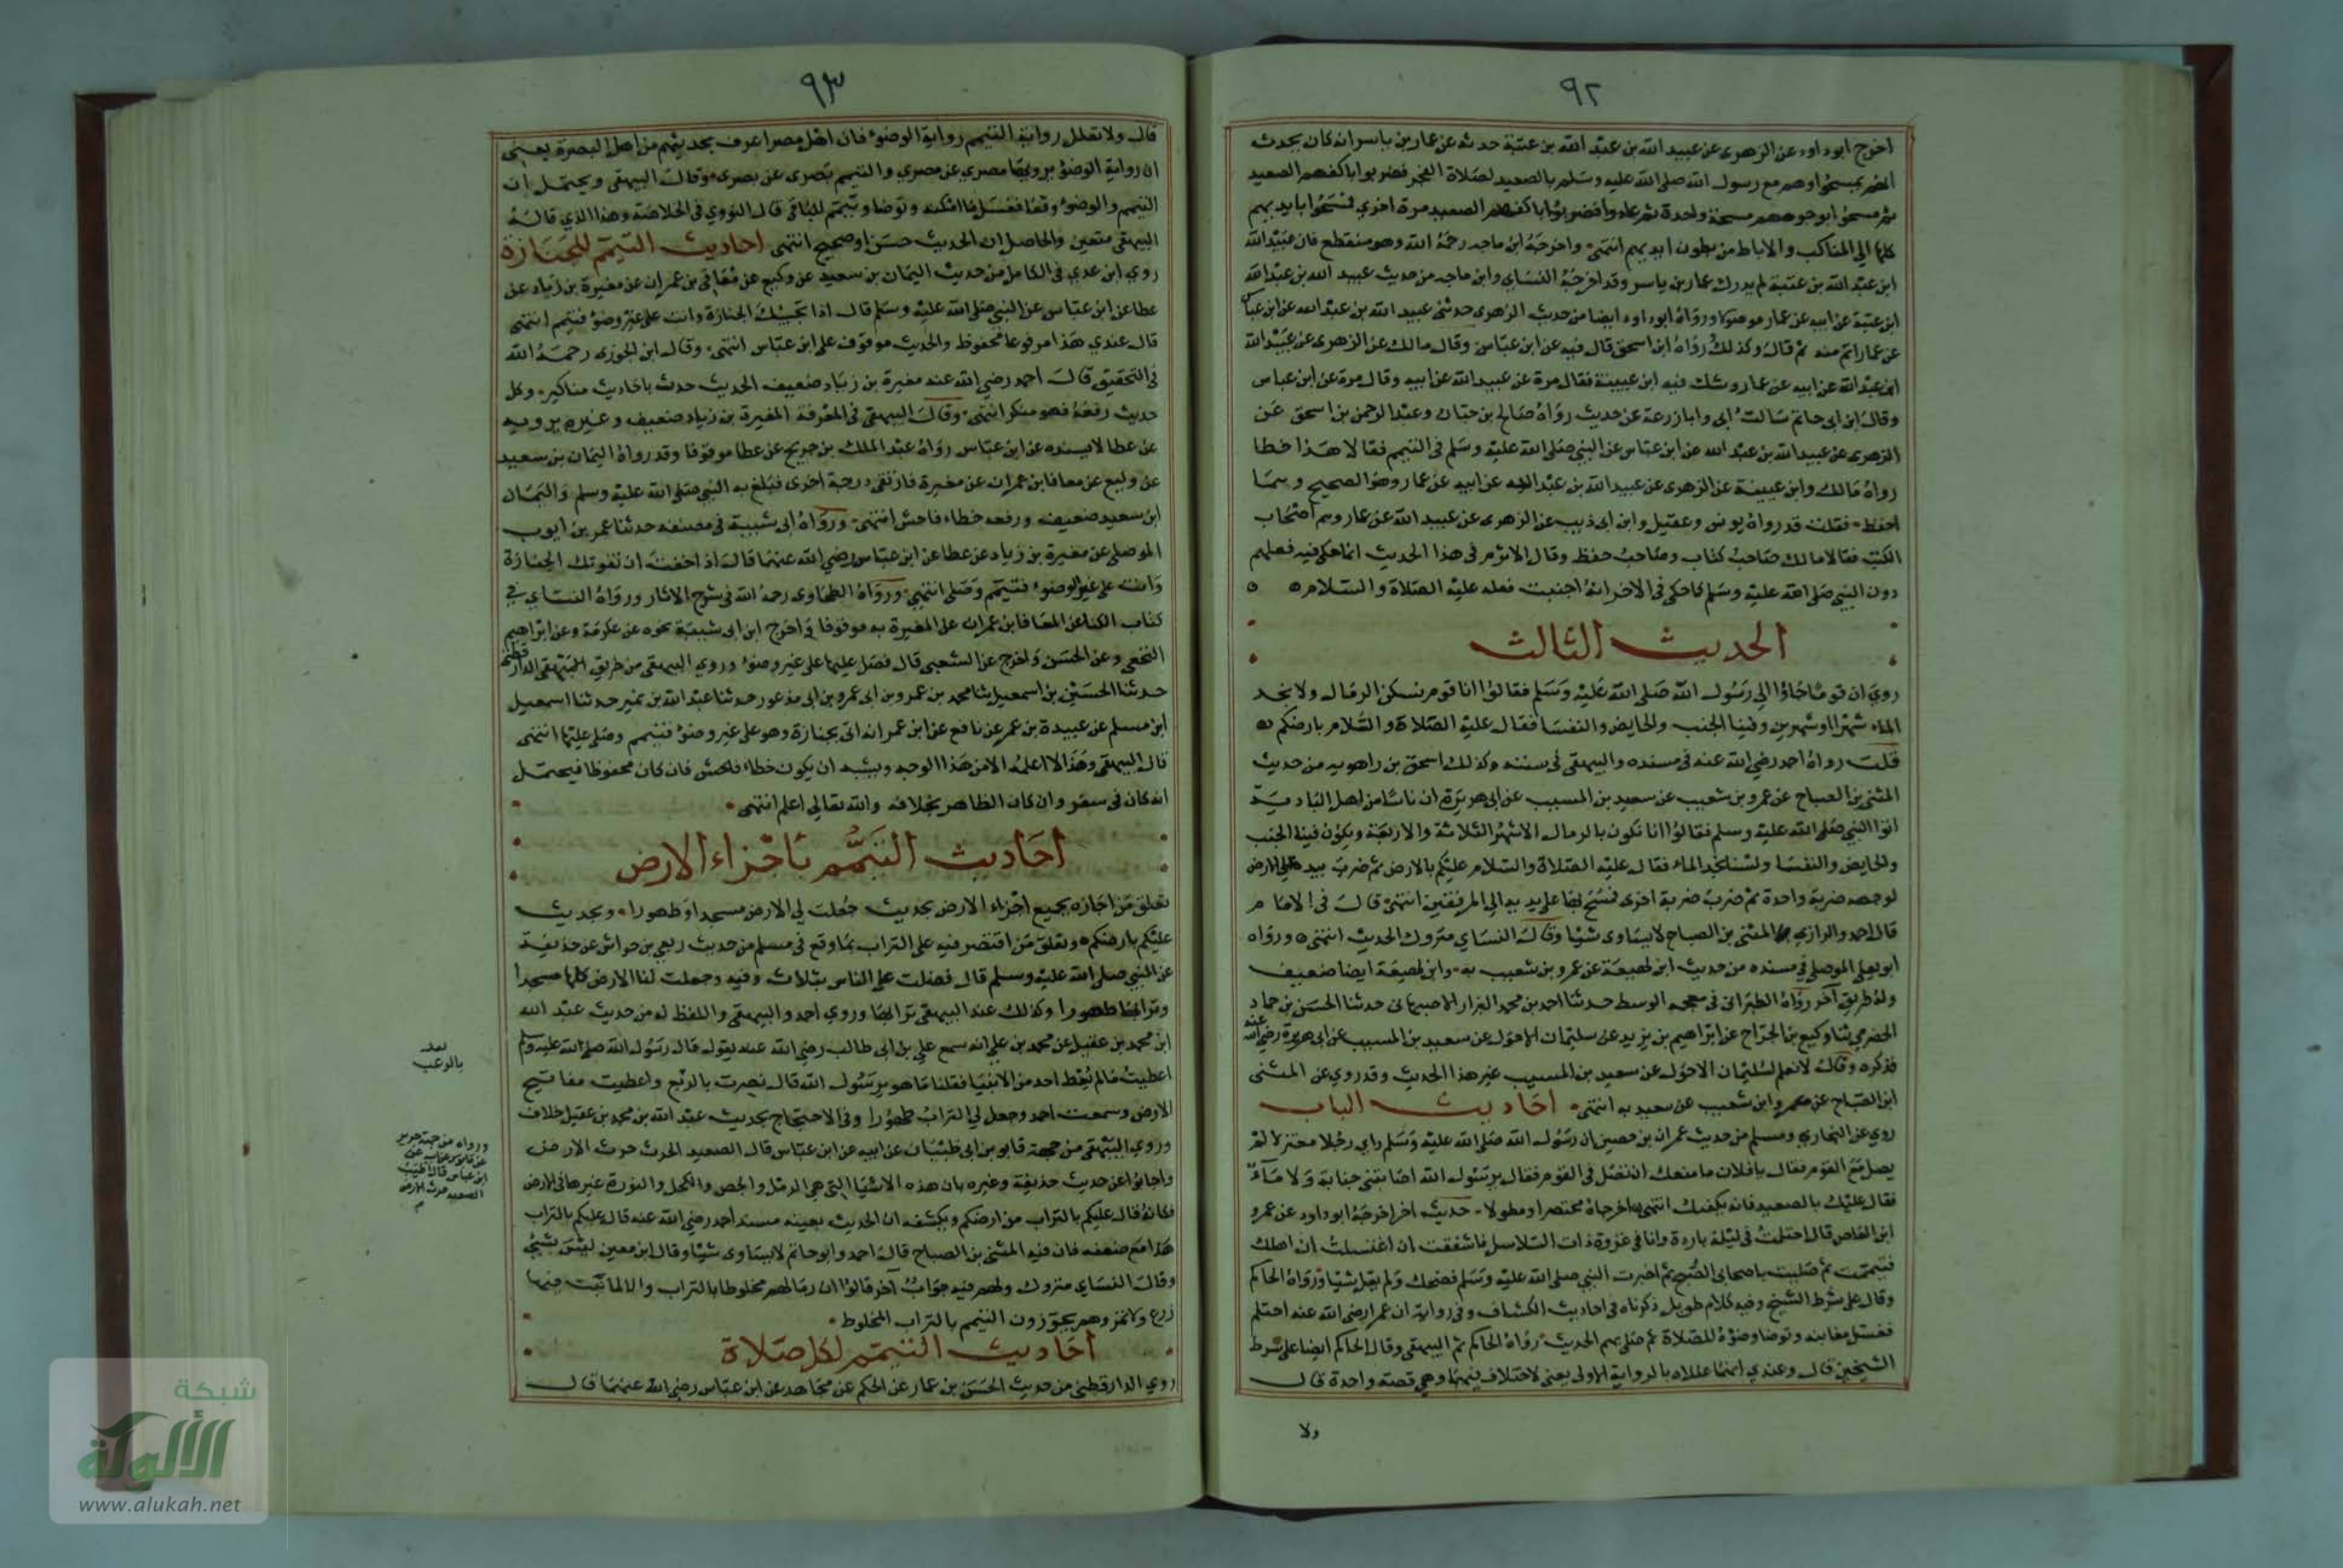 ٩٢
اخرج ابو داود عن الزهري عن عبيد الله بن عبد الله بن عتبة حدثه عن عمار بن ياسر انه كان يحدث
انهم تمسحوا وهم مع رسول الله صلى الله عليه وسلم بالصعيد لصلاة الفجر فضربوا باكفهم الصعيد
ثم مسحوا بوجوههم مسحة واحدة ثم عادوا فضربوا باكفهم الصعيد مرة اخرى فمسحوا بايديهم
كلها الى المناكب والاباط من بطون ايديهم انتهى واخرجه ابن ماجه رحمه الله وهو منقطع فان عبيد الله
ابن عبد الله بن عتبة لم يدرك عمار بن ياسر وقد اخرجه النساي وابن ماجه من حديث عبيد الله بن عبد الله
ابن عتبة عن ابيه عن عمار موصولا ورواه ابو داود ايضا من حديث الزهرى حدثنى عبيد الله بن عبد الله عن ابن عباس
عن عمار اتم منه ثم قال وكذلك رواه ابن اسحق قال فيه عن ابن عباس وقال مالك عن الزهري عن عبيد الله
ابن عبد الله عن ابيه عن عمار وشك فيه ابن عيينة فقال مرة عن عبيد الله عن ابيه وقال مرة عن ابن عباس
وقال ابن ابى حاتم سالت ابى وابا زرعة عن حديث رواه صالح بن حبان وعبد الرحمن بن اسحق عن
الزهري عن عبيد الله بن عبد الله عن ابن عباس عن النبي صلى الله عليه وسلم فى التيمم فقالا هذا خطا
رواه مالك وابن عيينة عن الزهرى عن عبيد الله بن عبد الله عن ابيه عن عمار وهو الصحيح وهما
احفظ فقلت قد رواه يونس وعقيل وابن ابى ذيب عن الزهرى عن عبيد الله عن عمار وهم اصحاب
الكتب فقالا مالك صاحب كتاب وصاحب حفظ وقال الاثرم فى هذا الحديث انما حكى فيه فعلهم
دون النبي صلى الله عليه وسلم كما حكى فى الاخر انه اجنبت فعله عليه الصلاة والسلام
الحديث الثالث
روي ان قوما جاؤا الى رسول الله صلى الله عليه وسلم فقالوا انا قوم نسكن الرمال ولا نجد
الماء شهرا او شهرين وفينا الجنب والحايض والنفسا فقال عليه الصلاة والسلام بارضكم
قلت رواه احمد رضي الله عنه فى مسنده والبيهقى فى سننه وكذلك اسحق بن راهويه من حديث
المثنى بن الصباح عن عمرو بن شعيب عن سعيد بن المسيب عن ابى هريرة ان ناسا من اهل البادية
اتوا النبي صلى الله عليه وسلم فقالوا انا نكون بالرمال الاشهر الثلاثة والاربعة ويكون فينا الجنب
والحايض والنفسا ولسنا نجد الماء فقال عليه الصلاة والسلام عليكم بالارض ثم ضرب بيده على الارض
لوجهه ضربة واحدة ثم ضرب ضربة اخرى فمسح بها على يديه الى المرفقين انتهى قال فى الامام
قال احمد والرازي المثنى بن الصباح لا يساوى شيا وقال النساي متروك الحديث انتهى ورواه
ابو يعلى الموصلي في مسنده من حديث ابن لهيعة عن عمرو بن شعيب به وابن لهيعة ايضا ضعيف
وله طريق آخر رواه الطبرانى فى معجمه الوسط حدثنا احمد بن محمد البزار الاصبهانى حدثنا الحسن بن حماد
الحضرمي ثنا وكيع بن الجراح عن ابراهيم بن يزيد عن سليمان الاحول عن سعيد بن المسيب عن ابى هريرة رضي الله عنه
فذكره وقال لا نعلم لسليمان الاحول عن سعيد بن المسيب غير هذا الحديث وقد روي عن المثنى
ابن الصباح عن عمرو ابن شعيب عن سعيد به انتهى احاديث الباب
روي عن البخاري ومسلم من حديث عمران بن حصين ان رسول الله صلى الله عليه وسلم راي رجلا معتزلا لم
يصل مع القوم فقال يا فلان ما منعك ان تصل فى القوم فقال يرسول الله اصابتنى جنابة ولا ماء
فقال عليك بالصعيد فانه يكفيك انتهى اخرجاه مختصرا ومطولا حديث اخر اخرجه ابو داود عن عمرو
ابن العاص قال احتلمت فى ليلة باردة وانا فى غزوة ذات السلاسل فاشفقت ان اغتسلت ان اهلك
فتيممت ثم صليت باصحابى الصبح ثم اخبرت النبي صلى الله عليه وسلم فضحك ولم يقل شيا ورواه الحاكم
وقال على شرط الشيخ وفيه كلام طويل ذكرناه فى احاديث الكشاف وفى رواية ان عمرا رضى الله عنه احتلم
فغسل مغابنه وتوضا وضوءه للصلاة ثم صلى بهم الحديث رواه الحاكم ثم البيهقى وقال الحاكم ايضا على شرط
الشيخين قال وعندي انهما عللاه بالرواية الاولى يعنى لاختلافهما وهى قصة واحدة قال
ولا
٩٣
قال ولا تعلل رواية التيمم رواية الوضوء فان اهل مصر اعرف بحديثهم من اهل البصرة يعنى
ان رواية الوضوء يرويها مصري عن مصري والتيمم بصرى عن بصرى وقال البيهقى ويحتمل ان
التيمم والوضوء وقعا فغسل ما امكنه وتوضا وتيمم للباقى قال النووي فى الخلاصة وهذا الذي قاله
البيهقى متعين والحاصل ان الحديث حسن او صحيح انتهى احاديث التيمم للجنازة
روي ابن عدي فى الكامل من حديث اليمان بن سعيد عن وكيع عن معافى بن عمران عن مغيرة بن زياد عن
عطا عن ابن عباس عن النبي صلى الله عليه وسلم قال اذا تجيك الجنازة وانت على غير وضوء فتيمم انتهى
قال عندي هذا مرفوعا محفوظ والحديث موقوف على ابن عباس انتهى وقال ابن الجوزى رحمه الله
فى التحقيق قال احمد رضي الله عنه مغيرة بن زياد ضعيف الحديث حدث باحاديث مناكير وكل
حديث رفعه فهو منكر انتهى وقال البيهقى فى المعرفة المغيرة بن زياد ضعيف وغيره يرويه
عن عطا لا يسنده عن ابن عباس رواه عبد الملك بن جريج عن عطا موقوفا وقد رواه اليمان بن سعيد
عن وكيع عن معافا بن عمران عن مغيرة فارتقى درجة اخرى فبلغ به النبي صلى الله عليه وسلم واليمان
ابن سعيد ضعيف ورفعه خطاء فاحش انتهى ورواه ابى شيبة فى مصنفه حدثنا عمر بن ايوب
الموصلى عن مغيرة بن زياد عن عطا عن ابن عباس رضي الله عنهما قال اذا خفت ان تفوتك الجنازة
وانت على غير الوضوء فتيمم وصل انتهى ورواه الطحاوى رحمه الله فى شرح الاثار ورواه النساي في
كتاب الكنا عن المعافا بن عمران عن المغيرة به موقوفا واخرج ابن ابى شيبة نحوه عن عكرمة وعن ابراهيم
النخعى وعن الحسن واخرج عن الشعبى قال فصل عليها على غير وضوء وروي البيهقى من طريق الدارقطنى
حدثنا الحسين بن اسمعيل ثنا محمد بن عمرو بن ابى مذعور حدثنا عبد الله بن نمير حدثنا اسمعيل
ابن مسلم عن عبيدة بن عمر عن نافع عن ابن عمر انه اتى بجنازة وهو على غير وضوء فتيمم وصلى عليها انتهى
قال البيهقى وهذا لا اعلمه الا من هذا الوجه ويشبه ان يكون خطاء فاحش فان كان محفوظا فيحتمل
انه كان فى سفر وان كان الظاهر بخلافه والله تعالى اعلم انتهى
احاديث التيمم باجزاء الارض
تعلق من اجازه بجميع اجزاء الارض بحديث جعلت لي الارض مسجدا وطهورا وبحديث
عليكم بارضكم وتعلق من اقتصر فيه على التراب بما وقع فى مسلم من حديث ربعى بن حراش عن حذيفة
عن النبي صلى الله عليه وسلم قال فضلت على الناس بثلاث وفيه وجعلت لنا الارض كلها مسجدا
وترابها طهورا وكذلك عند البيهقى ترابها وروي احمد والبيهقى واللفظ له من حديث عبد الله
ابن محمد بن عقيل عن محمد بن على انه سمع علي بن ابى طالب رضي الله عنه يقول قال رسول الله صلى الله عليه وسلم
اعطيت ما لم يعط احد من الانبيا فقلنا ما هو يرسول الله قال نصرت بالرعب واعطيت مفاتيح
الارض وسميت احمد وجعل لي التراب طهورا وفى الاحتجاج بحديث عبد الله بن محمد بن عقيل خلاف
وروي البيهقى من جهة قابوس بن ابى ظبيان عن ابيه عن ابن عباس قال الصعيد الحرث حرث الارض
واجابوا عن حديث حذيفة وغيره بان هذه الاشيا التى هى الرمل والجص والكحل والنورة غيرها فى الارض
فكانه قال عليكم بالتراب من ارضكم ويكشفه ان الحديث بعينه مسند احمد رضي الله عنه قال عليكم بالتراب
هذا مع ضعفه فان فيه المثنى بن الصباح قال احمد وابو حاتم لا يساوى شيا وقال ابن معين ليس بشيء
وقال النساي متروك ولهم فيه جواب آخر قالوا ان رمالهم مخلوطا بالتراب والا لما تنبت فيها
زرع ولا تمر وهم يجوزون التيمم بالتراب المخلوط
احاديث التيمم لكل صلاة
روي الدارقطني من حديث الحسن بن عمار عن الحكم عن مجاهد عن ابن عباس رضي الله عنهما قال
بالرعب
ورواه من جهة جرير
ابن عباس قال اطيب
الصعيد حرث الارض
شبكة
الألوكة
www.alukah.net